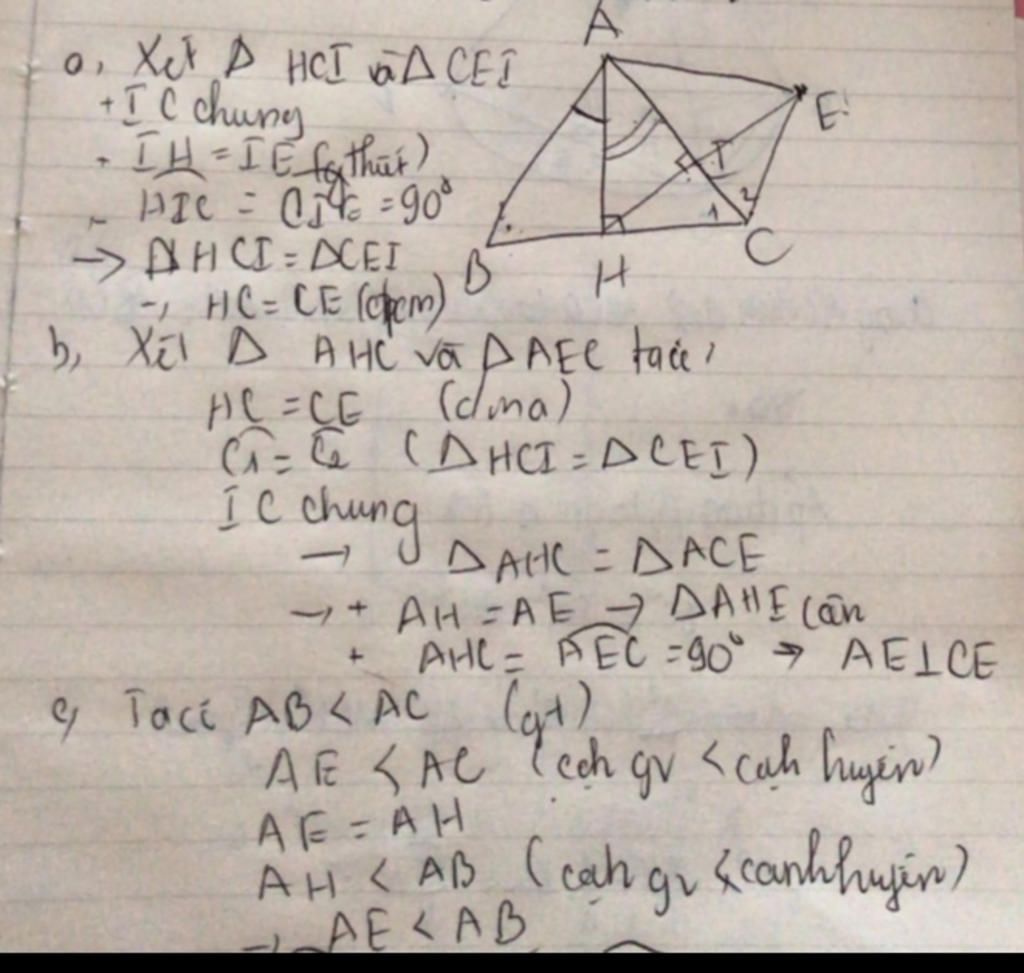 a, Xét Δ HCI và Δ CEI
+ IC chung
- IH = IE (g thiết)
- HIC = CIE = 90°
→ Δ HCI = ΔCEI
→ HC = CE (đpcm)
b, Xét Δ AHC và Δ AEC ta có
HC = CE (cma)
C1 = C2 (Δ HCI = Δ CEI)
IC chung
→ Δ AHC = Δ ACE
→ + AH = AE → ΔAHE cân
+ AHC = AEC = 90° → AE⊥CE
c, Ta có AB < AC (gt)
AE < AC (cạh gv < cạh huyền)
AE = AH
AH < AB (cạh gv < canh huyền)
→ AE < AB
A
E
I
1
2
B
H
C